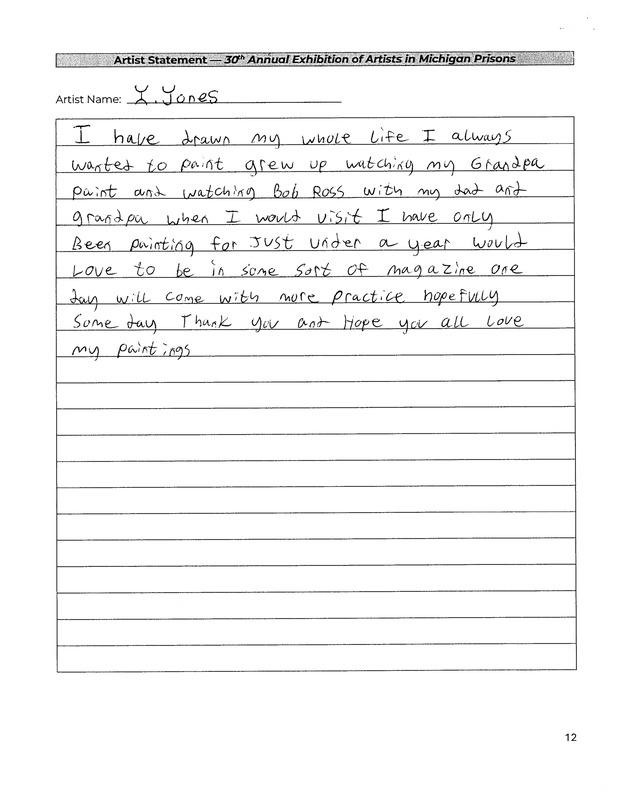 Artist Statement — 30th Annual Exhibition of Artists in Michigan Prisons
Artist Name: Y. Jones
I have drawn my whole life I always
wanted to paint grew up watching my Grandpa
paint and watching Bob Ross with my dad and
grandpa when I would visit I have only
Been painting for JUST under a year would
Love to be in some sort of magazine one
day will come with more practice hopefully
Some day Thank you and Hope you all love
my paintings
12